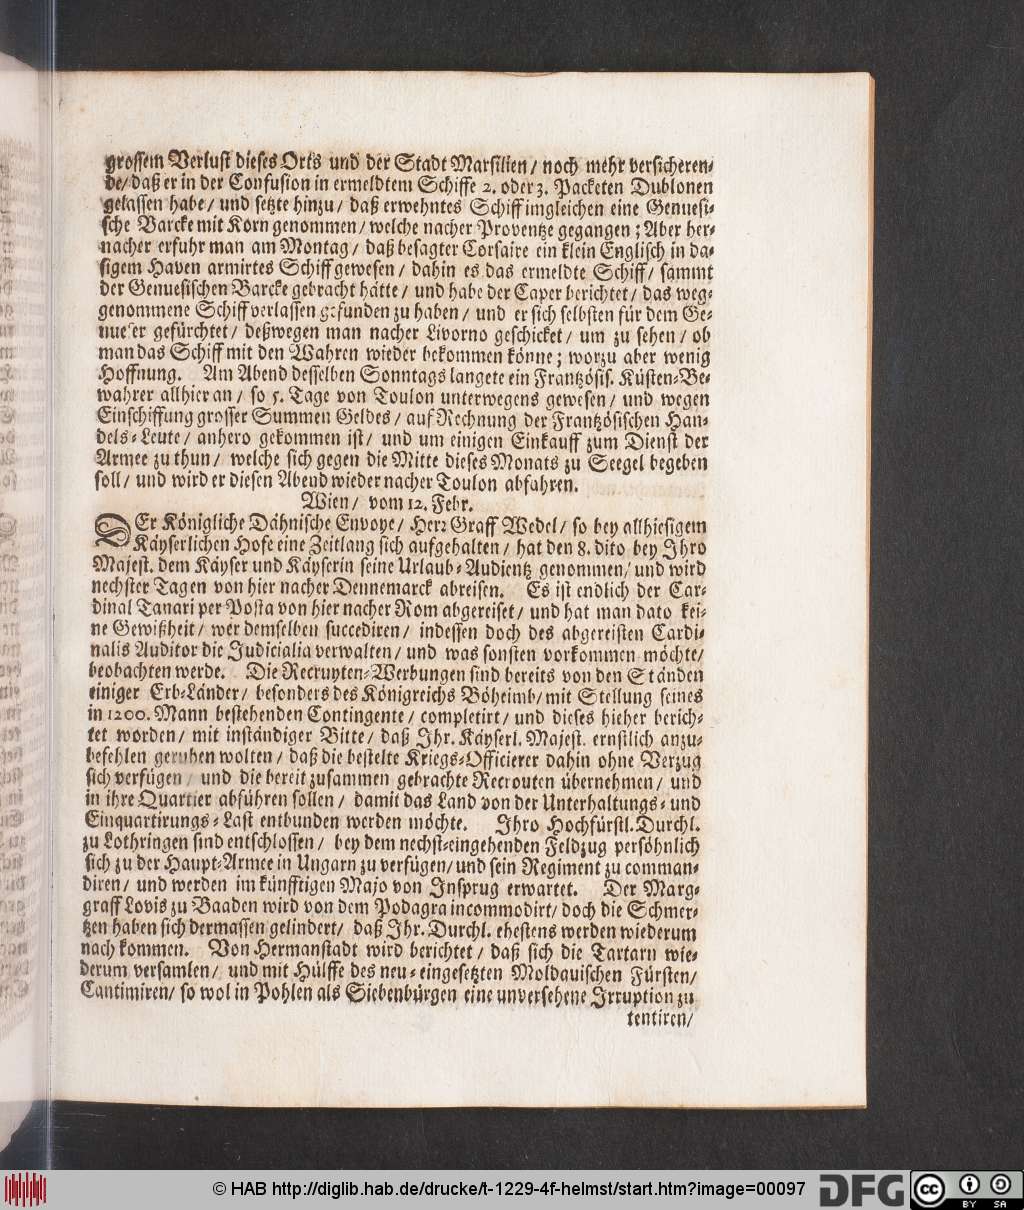 grossem Verlust dieses Orts und der Stadt Marsilien/ noch mehr versicheren-
de/ daß er in der Confusion in ermeldtem Schiffe 2. oder 3. Packeten Dublonen
gelassen habe/ und setzte hinzu/ daß erwehntes Schiff imgleichen eine Genuesi-
sche Barcke mit Korn genommen/ welche nacher Proventze gegangen; Aber her-
nacher erfuhr man am Montag/ daß besagter Corsaire ein klein Englisch in da-
sigem Haven armirtes Schiff gewesen/ dahin es das ermeldte Schiff/ sammt
der Genuesischen Barcke gebracht hätte/ und habe der Caper berichtet/ das weg-
genommene Schiff verlassen gefunden zu haben/ und er sich selbsten für dem Ge-
nueser gefürchtet/ deßwegen man nacher Livorno geschicket/ um zu sehen/ ob
man das Schiff mit den Wahren wieder bekommen könne; worzu aber wenig
Hoffnung. Am Abend desselben Sonntags langete ein Frantzösis. Küsten-Be-
wahrer allhier an/ so 5. Tage von Toulon unterwegens gewesen/ und wegen
Einschiffung grosser Summen Geldes/ auf Rechnung der Frantzösischen Han-
dels-Leute/ anhero gekommen ist/ und um einigen Einkauff zum Dienst der
Armee zu thun/ welche sich gegen die Mitte dieses Monats zu Seegel begeben
soll/ und wird er diesen Abend wieder nacher Toulon abfahren.
Wien/ vom 12. Febr.
DEr Königliche Dähnische Envoye/ Herr Graff Wedel/ so bey allhiesigem
Käyserlichen Hofe eine Zeitlang sich aufgehalten/ hat den 8. dito bey Ihro
Majest. dem Käyser und Käyserin seine Urlaub-Audientz genommen/ und wird
nechster Tagen von hier nacher Dennemarck abreisen. Es ist endlich der Car-
dinal Tanari per Posta von hier nacher Rom abgereiset/ und hat man dato kei-
ne Gewißheit/ wer demselben succediren/ indessen doch des abgereisten Cardi-
nalis Auditor die Judicialia verwalten/ und was sonsten vorkommen möchte/
beobachten werde. Die Recruyten-Werbungen sind bereits von den Ständen
einiger Erb-Länder/ besonders des Königreichs Böheimb/ mit Stellung seines
in 1200. Mann bestehenden Contingente/ completirt/ und dieses hieher berich-
tet worden/ mit inständiger Bitte/ daß Ihr. Käyserl. Majest. ernstlich anzu-
befehlen geruhen wolten/ daß die bestelte Kriegs-Officierer dahin ohne Verzug
sich verfügen/ und die bereit zusammen gebrachte Recrouten übernehmen/ und
in ihre Quartier abführen sollen/ damit das Land von der Unterhaltungs- und
Einquartirungs-Last entbunden werden möchte. Ihro Hochfürstl. Durchl.
zu Lothringen sind entschlossen/ bey dem nechst-eingehenden Feldzug persöhnlich
sich zu der Haupt-Armee in Ungarn zu verfügen/ und sein Regiment zu comman-
diren/ und werden im künfftigen Majo von Insprug erwartet. Der Marg-
graff Lovis zu Baaden wird von dem Podagra incommodirt/ doch die Schmer-
tzen haben sich dermassen gelindert/ daß Ihr. Durchl. ehestens werden wiederum
nach kommen. Von Hermanstadt wird berichtet/ daß sich die Tartarn wie-
derum versamlen/ und mit Hülffe des neu-eingesetzten Moldauischen Fürsten/
Cantimiren/ so wol in Pohlen als Siebenbürgen eine unversehene Irruption zu
tentiren/
© HAB http://diglib.hab.de/drucke/t-1229-4f-helmst/start.htm?image=00097
DFG
cc
BY SA